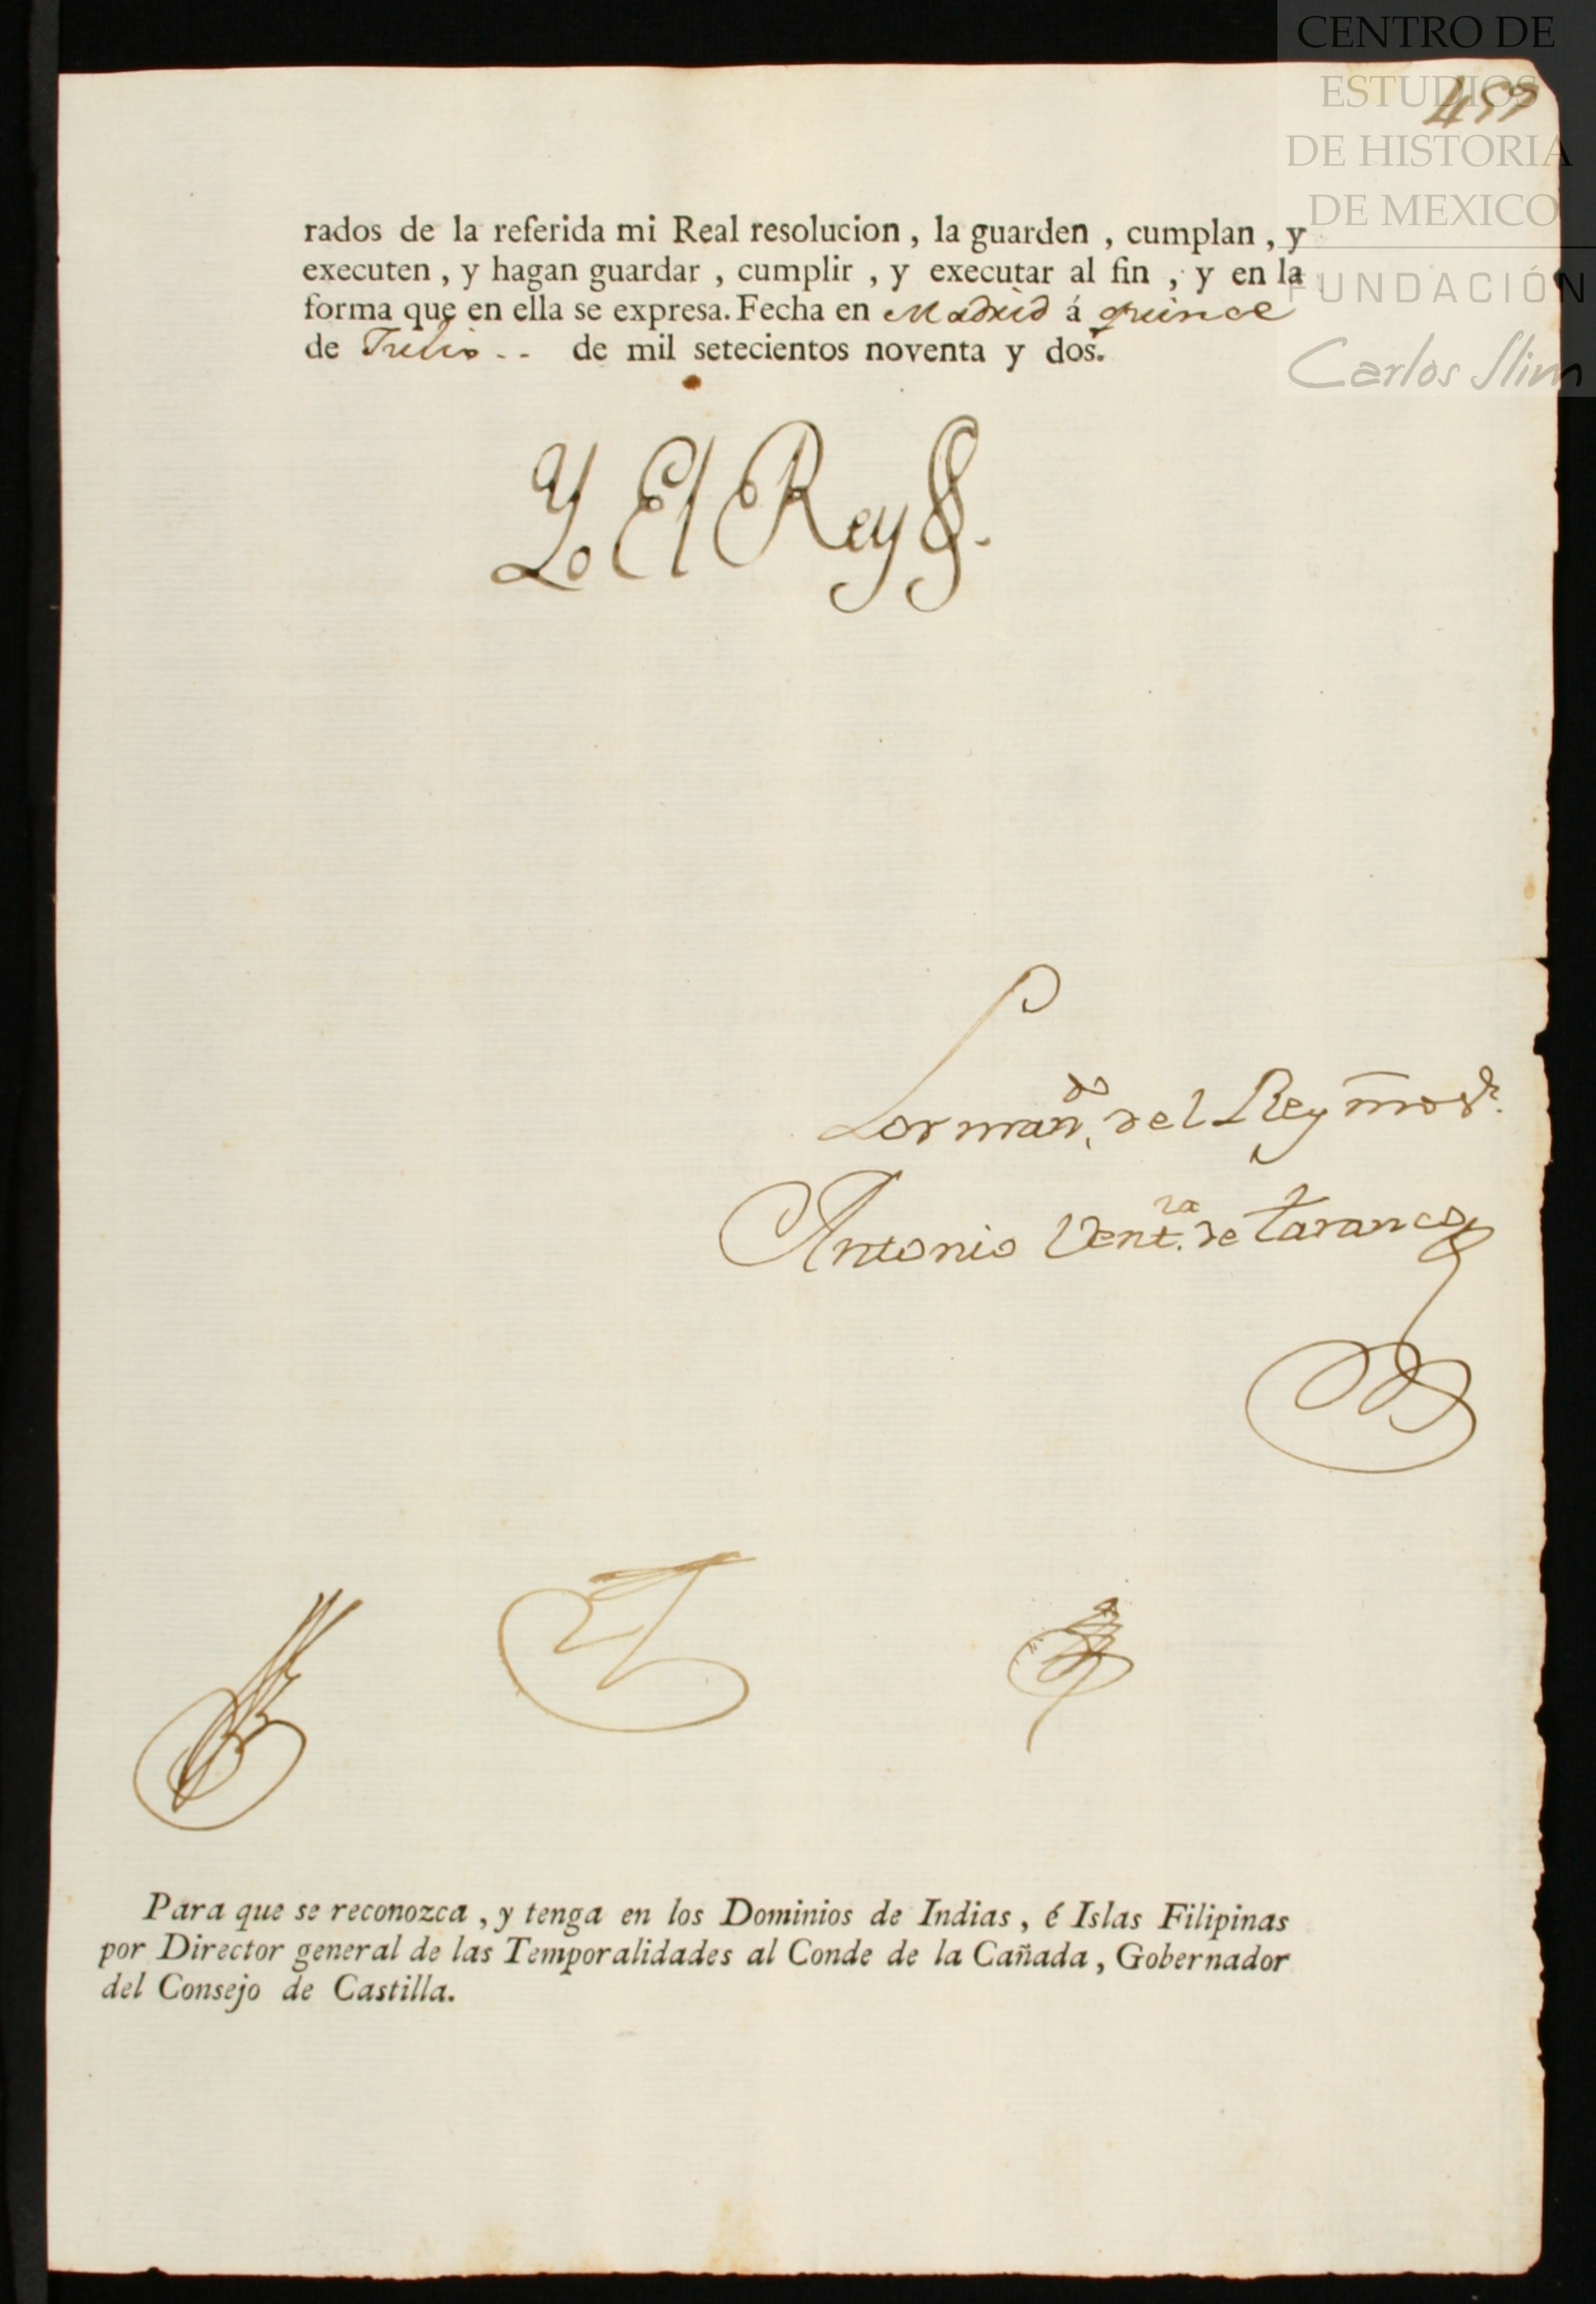 CENTRO DE
ESTUDIOS
DE HISTORIA
DE MEXICO
FUNDACIÓN
Carlos Slim
rados de la referida mi Real resolucion , la guarden , cumplan , y
executen , y hagan guardar , cumplir , y executar al fin , y en la
forma que en ella se expresa. Fecha en Madrid á quince
de Julio - - de mil setecientos noventa y dos.
Yo El Rey
Por man.do del Rey nro Sr.
Antonio Vent.ra de Taranco
Para que se reconozca , y tenga en los Dominios de Indias , é Islas Filipinas
por Director general de las Temporalidades al Conde de la Cañada , Gobernador
del Consejo de Castilla.